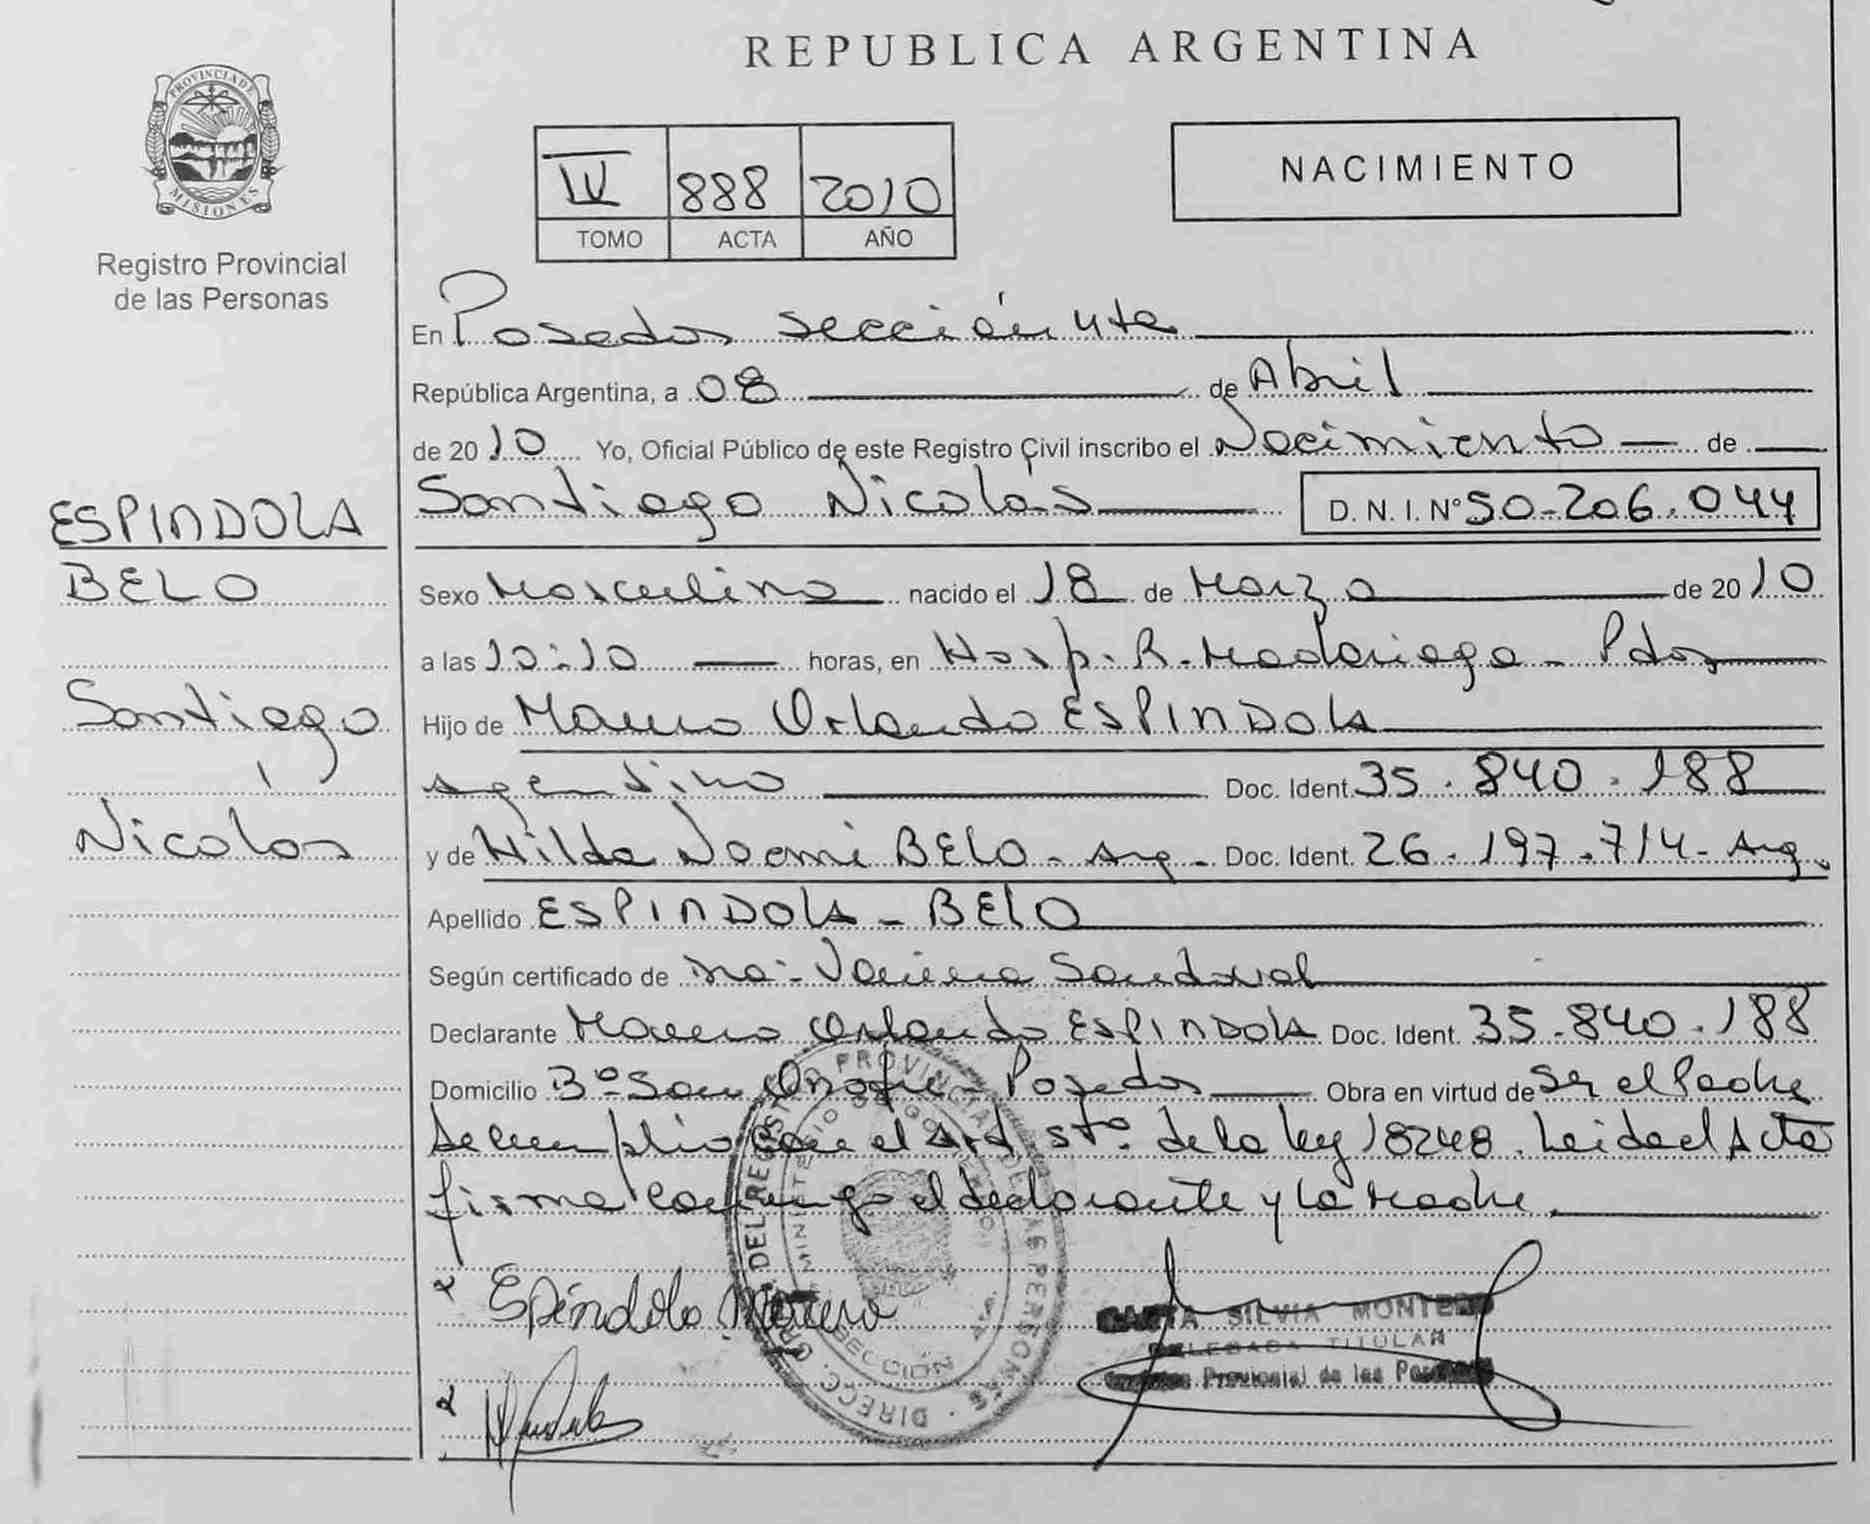 REPUBLICA ARGENTINA
PROVINCIA DE
MISIONES
Registro Provincial
de las Personas
IV 888 2010
TOMO ACTA AÑO
NACIMIENTO
En Posadas sección 4ta
República Argentina, a 08 de Abril
de 2010 Yo, Oficial Público de este Registro Civil inscribo el Nacimiento de
Santiago Nicolás D. N. I. N° 50-206.044
ESPINDOLA
BELO
Santiago
Nicolás
Sexo Masculino nacido el 18 de Marzo de 2010
a las 10:10 horas, en Hosp. R. Madariaga - Pdas
Hijo de Mauro Orlando ESPINDOLA
argentino Doc. Ident. 35.840.188
y de Hilda Noemi BELO - Arg - Doc. Ident. 26.197.714 - Arg.
Apellido ESPINDOLA - BELO
Según certificado de Sandoval
Declarante Mauro Orlando ESPINDOLA Doc. Ident. 35.840.188
Domicilio B° San Onofre Posadas Obra en virtud de ser el Padre
se cumplio con el Art 5to. de la ley 18248. Leida el Acta
firma conmigo el declarante y la Madre.
DIRECC. GRAL. DEL REGISTRO PROVINCIAL DE LAS PERSONAS
MINISTERIO DE GOBIERNO
Espíndola Mauro
SILVIA MONTERO
DELEGADA TITULAR
Provincial de las Personas